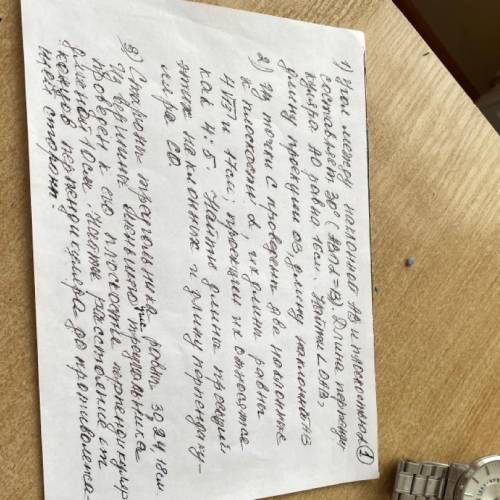 1) Угол между наклонной АВ и плоскостью 1
составляет 30° (АВ∩α=В). Длина перпенди
куляра АО равна 16см. Найти ∠ОАВ,
длину проекции ОВ, длину наклонной АВ
2) Из точки С проведены две наклонные
к плоскости α, их длины равны
и 17см; проекции их относятся
как 4:5. Найти длины проекций
этих наклонных и длину перпендику-
ляра СО.
3) Стороны треугольника равны 30, 24, 18см.
Из вершины треугольника
проведен к его плоскости перпендикуляр
длиной 10см. Найти расстояние от
концов перпендикуляра до противолежа-
щей стороны.